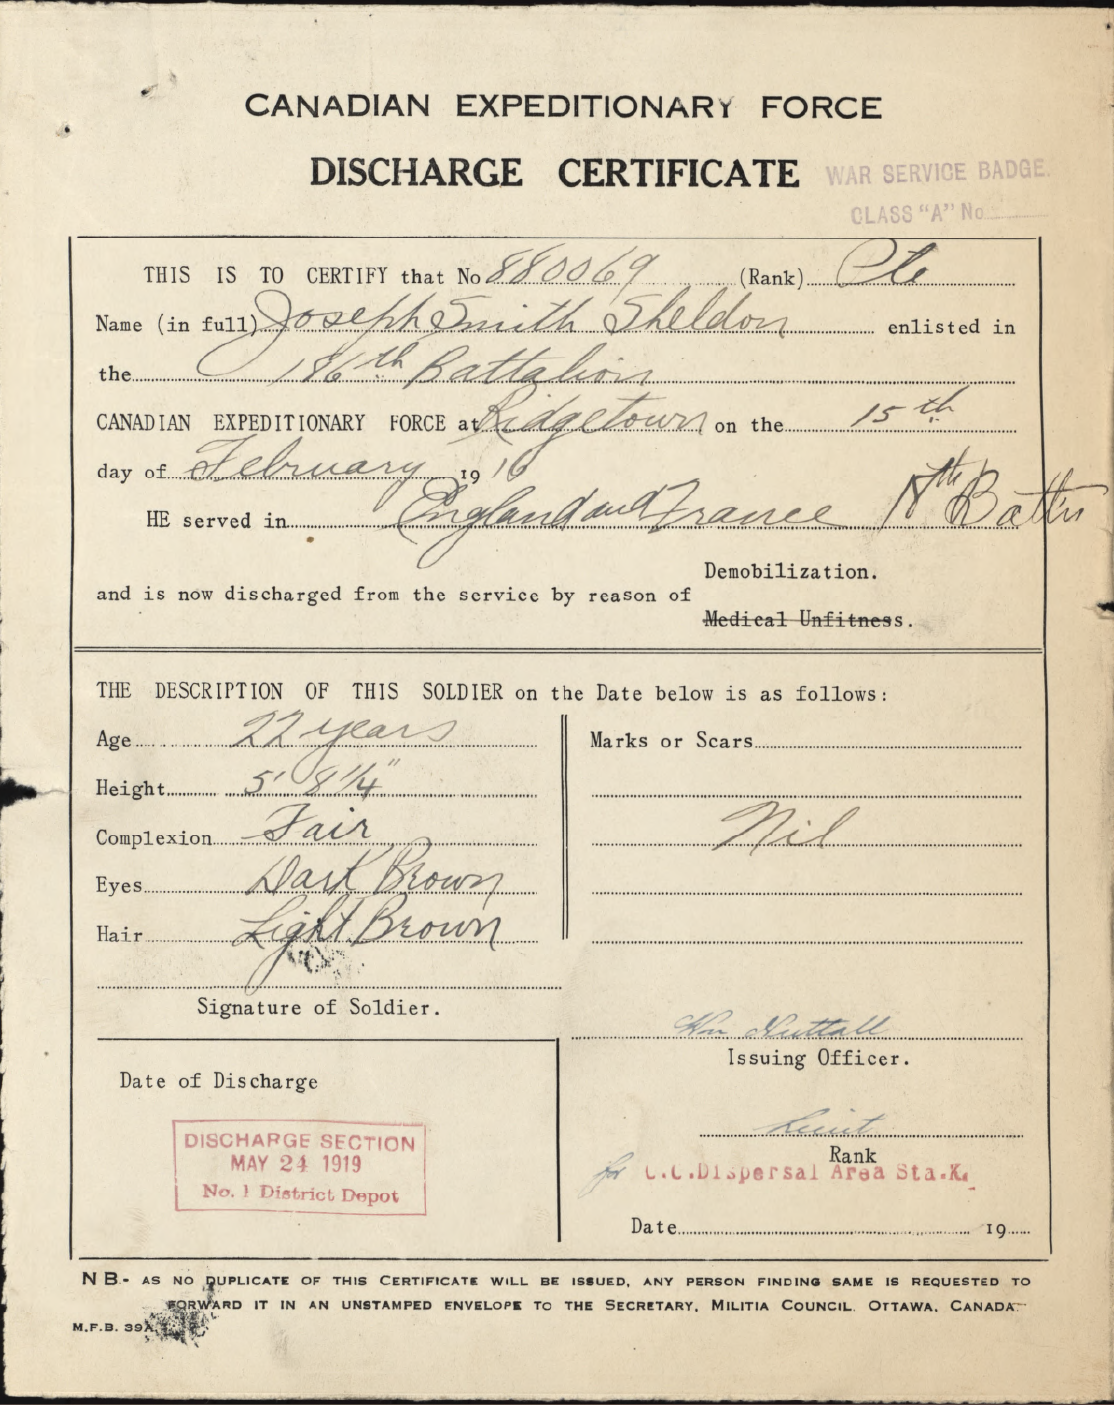 CANADIAN EXPEDITIONARY FORCE
DISCHARGE CERTIFICATE
WAR SERVICE BADGE.
CLASS "A" No
THIS IS TO CERTIFY that No 880069 (Rank) Pte
Name (in full) Joseph Smith Sheldon enlisted in
the 186th Battalion
CANADIAN EXPEDITIONARY FORCE at Ridgetown on the 15th
day of February 1916
HE served in England and France Battn
Demobilization.
and is now discharged from the service by reason of
Medical Unfitness.
THE DESCRIPTION OF THIS SOLDIER on the Date below is as follows:
Age 22 years
Height 5' 8 1/4"
Complexion Fair
Eyes Dark Brown
Hair Light Brown
Marks or Scars
Nil
Signature of Soldier.
Wm Nuttall
Issuing Officer.
Lieut
Rank
for O.C. Dispersal Area Sta. K.
Date 19
Date of Discharge
DISCHARGE SECTION
MAY 24 1919
No. 1 District Depot
NB- AS NO DUPLICATE OF THIS CERTIFICATE WILL BE ISSUED, ANY PERSON FINDING SAME IS REQUESTED TO
FORWARD IT IN AN UNSTAMPED ENVELOPE TO THE SECRETARY, MILITIA COUNCIL. OTTAWA. CANADA
M.F.B. 39A